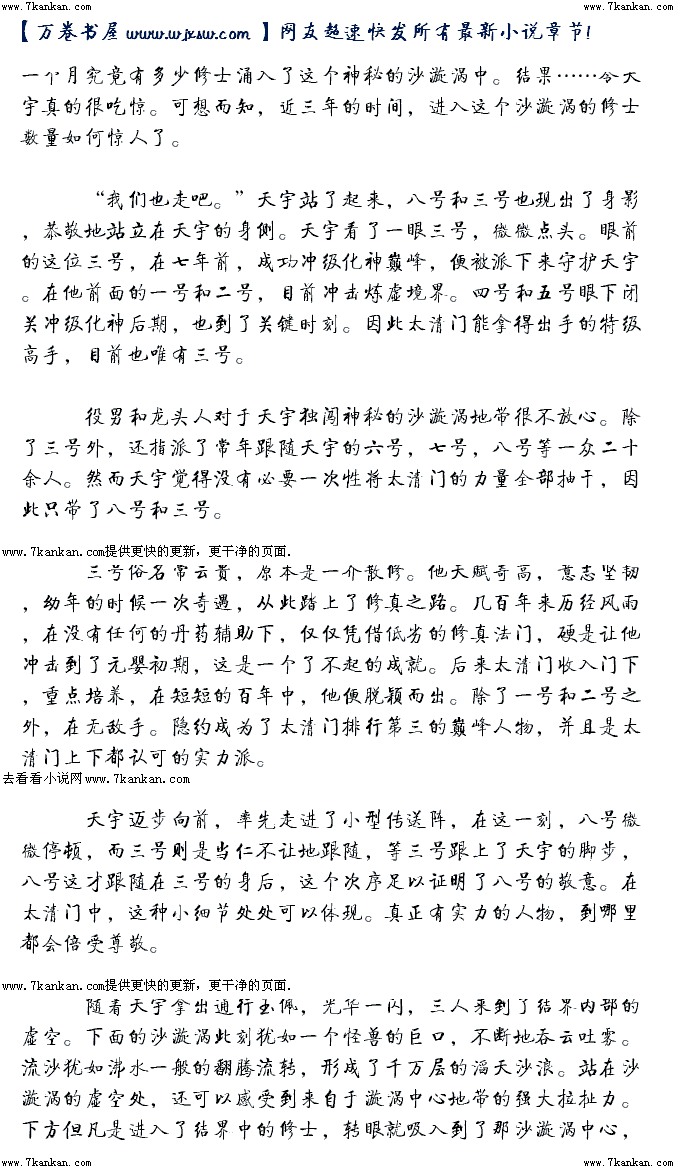 www.7kankan.com www.7kankan.com
【万卷书屋 www.wjxsw.com 】网友超速快发所有最新小说章节!
一个月究竟有多少修士涌入了这个神秘的沙漩涡中。结果……令天
宇真的很吃惊。可想而知，近三年的时间，进入这个沙漩涡的修士
数量如何惊人了。
“我们也走吧。”天宇站了起来，八号和三号也现出了身影
，恭敬地站立在天宇的身侧。天宇看了一眼三号，微微点头。眼前
的这位三号，在七年前，成功冲级化神巅峰，便被派下来守护天宇
。在他前面的一号和二号，目前冲击炼虚境界。四号和五号眼下闭
关冲级化神后期，也到了关键时刻。因此太清门能拿得出手的特级
高手，目前也唯有三号。
役男和龙头人对于天宇独闯神秘的沙漩涡地带很不放心。除
了三号外，还指派了常年跟随天宇的六号，七号，八号等一众二十
余人。然而天宇觉得没有必要一次性将太清门的力量全部抽干，因
此只带了八号和三号。
www.7kankan.com提供更快的更新，更干净的页面.
三号俗名常云贵，原本是一介散修。他天赋奇高，意志坚韧
，幼年的时候一次奇遇，从此踏上了修真之路。几百年来历经风雨
，在没有任何的丹药辅助下，仅仅凭借低劣的修真法门，硬是让他
冲击到了元婴初期，这是一个了不起的成就。后来太清门收入门下
，重点培养，在短短的百年中，他便脱颖而出。除了一号和二号之
外，在无敌手。隐约成为了太清门排行第三的巅峰人物，并且是太
清门上下都认可的实力派。
去看看小说网www.7kankan.com
天宇迈步向前，率先走进了小型传送阵，在这一刻，八号微
微停顿，而三号则是当仁不让地跟随，等三号跟上了天宇的脚步，
八号这才跟随在三号的身后，这个次序足以证明了八号的敬意。在
太清门中，这种小细节处处可以体现。真正有实力的人物，到哪里
都会倍受尊敬。
www.7kankan.com提供更快的更新，更干净的页面.
随着天宇拿出通行玉佩，光华一闪，三人来到了结界内部的
虚空。下面的沙漩涡此刻犹如一个怪兽的巨口，不断地吞云吐雾。
流沙犹如沸水一般的翻腾流转，形成了千万层的滔天沙浪。站在沙
漩涡的虚空处，还可以感受到来自于漩涡中心地带的强大拉扯力。
下方但凡是进入了结界中的修士，转眼就吸入到了那沙漩涡中心，
www.7kankan.com www.7kankan.com